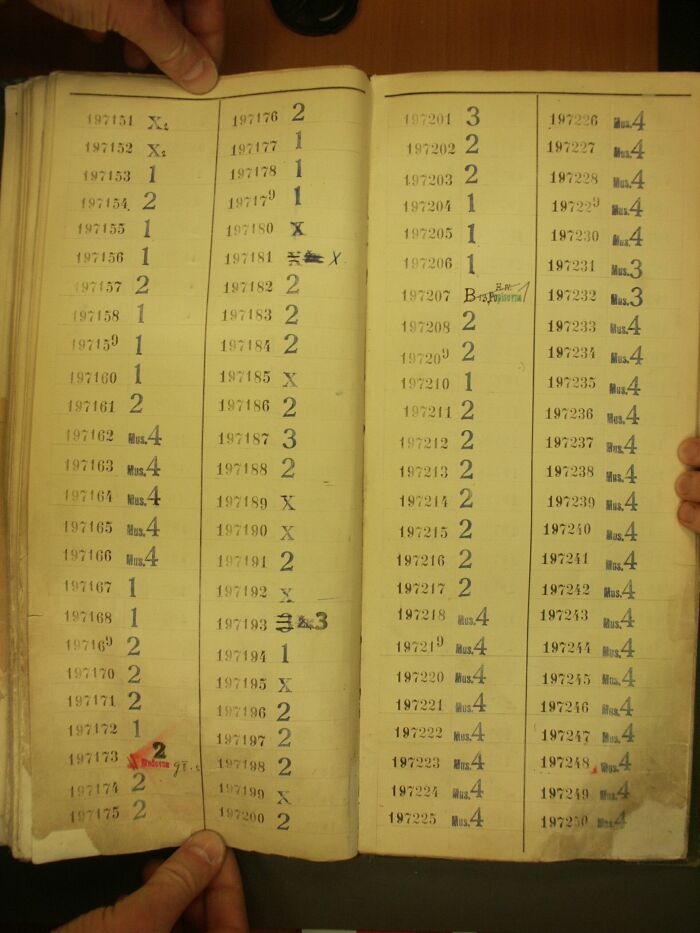 197151 X₂
197152 X₂
197153 1
197154 2
197155 1
197156 1
197157 2
197158 1
197159 1
197160 1
197161 2
197162 Mus.4
197163 Mus.4
197164 Mus.4
197165 Mus.4
197166 Mus.4
197167 1
197168 1
197169 2
197170 2
197171 2
197172 1
197173 2
197174 2
197175 2
197176 2
197177 1
197178 1
197179 1
197180 X
197181 X
197182 2
197183 2
197184 2
197185 X
197186 2
197187 3
197188 2
197189 X
197190 X
197191 2
197192 X
197193 3 3
197194 1
197195 X
197196 2
197197 2
197198 2
197199 X
197200 2
197201 3
197202 2
197203 2
197204 1
197205 1
197206 1
197207 B
197208 2
197209 2
197210 1
197211 2
197212 2
197213 2
197214 2
197215 2
197216 2
197217 2
197218 Mus.4
197219 Mus.4
197220 Mus.4
197221 Mus.4
197222 Mus.4
197223 Mus.4
197224 Mus.4
197225 Mus.4
197226 Mus.4
197227 Mus.4
197228 Mus.4
197229 Mus.4
197230 Mus.4
197231 Mus.3
197232 Mus.3
197233 Mus.4
197234 Mus.4
197235 Mus.4
197236 Mus.4
197237 Mus.4
197238 Mus.4
197239 Mus.4
197240 Mus.4
197241 Mus.4
197242 Mus.4
197243 Mus.4
197244 Mus.4
197245 Mus.4
197246 Mus.4
197247 Mus.4
197248 Mus.4
197249 Mus.4
197250 Mus.4